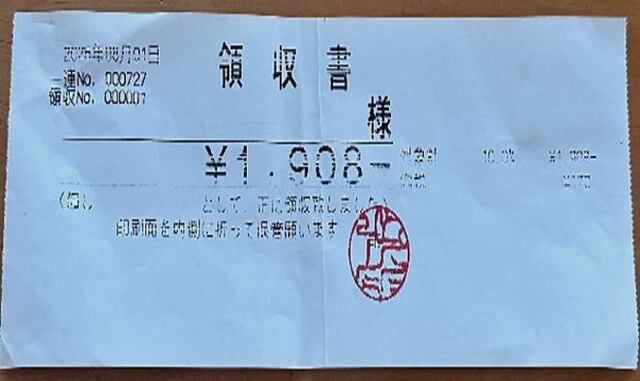 2025年08月01日
一連No. 000727
領収No. 000001
領収書
様
¥1,908-
対象計 10.0% ¥1,908-
(但し として、正に領収致しました)
印刷面を内側に折って保管願います